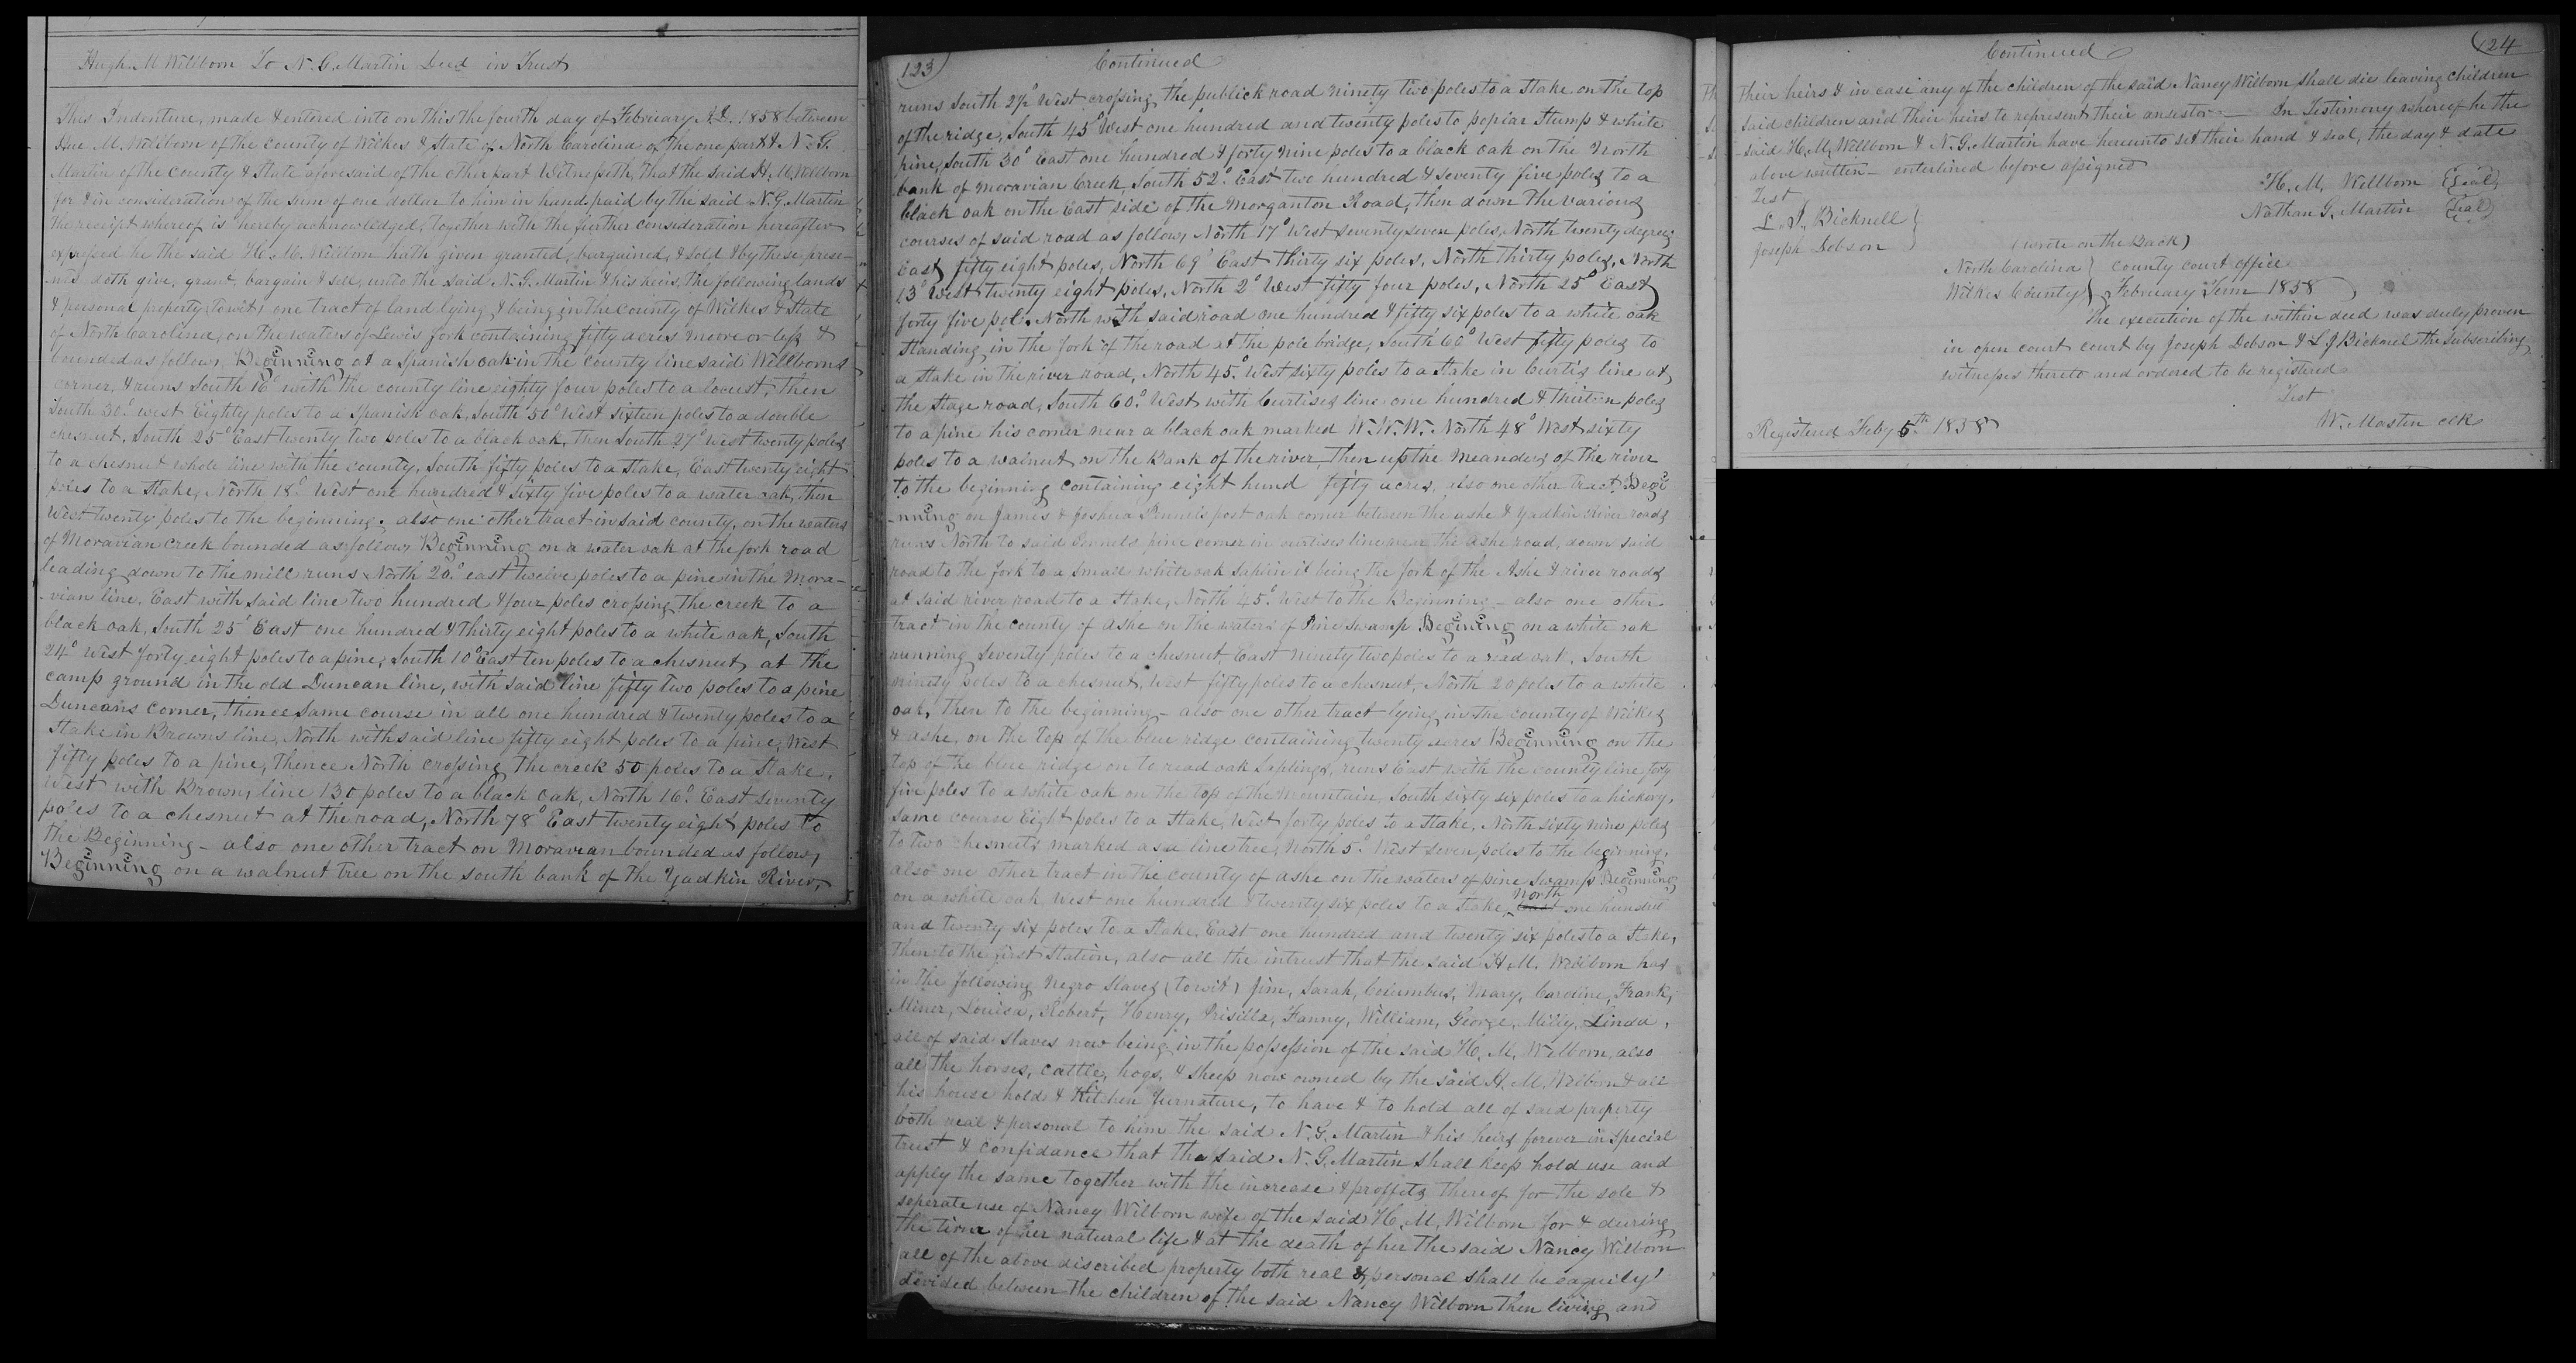 Hugh M Willborn To N. G. Martin Deed in Trust
This Indenture, made & entered into on this the fourth day of February A.D. 1858 between
Hue M. Willborn of the County of Wilkes & State of North Carolina of the one part & N. G.
Martin of the county & State aforesaid of the other part Witnesseth, that the said H. M. Willborn
for & in consideration of the sum of one dollar to him in hand paid by the said N. G. Martin
the receipt whereof is hereby acknowledged, together with the further consideration hereafter
expressed he the said H. M. Willborn hath given granted, bargained, & sold & by these prese-
-nts doth give, grant, bargain & sell, unto the said N. G. Martin & his heirs, the following lands
& personal property, to wit, one tract of land lying & being in the county of Wilkes & State
of North Carolina, on the waters of Lewis fork containing fifty acres more or less &
bounded as follows, Beginning at a Spanish oak in the county line said Willborns
corner, & runs South 16° with the county line eighty four poles to a locust, then
South 30° west Eighty poles to a Spanish oak, South 50° West sixteen poles to a double
chesnut, South 25° East twenty two poles to a black oak, then South 27° west twenty poles
to a chesnut whole line with the county, South fifty poles to a stake, East twenty eight
poles to a stake, North 18° West one hundred & sixty five poles to a water oak, then
West twenty poles to the beginning. also one other tract in said county, on the waters
of Moravian Creek bounded as follows Beginning on a water oak at the fork road
leading down to the mill runs North 20° east twelve poles to a pine in the Mora-
-vian line, East with said line two hundred & four poles crossing the creek to a
black oak, South 25° East one hundred & thirty eight poles to a white oak, South
24° West forty eight poles to a pine, South 10° East ten poles to a chesnut at the
camp ground in the old Duncan line, with said line fifty two poles to a pine
Duncans corner, thence same course in all one hundred & twenty poles to a
stake in Browns line, North with said line fifty eight poles to a pine, West
fifty poles to a pine, thence North crossing the creek 50 poles to a stake,
West with Browns line 130 poles to a black oak, North 16° East seventy
poles to a chesnut at the road, North 78° East twenty eight poles to
the Beginning - also one other tract on Moravian bounded as follows,
Beginning on a walnut tree on the south bank of the Yadkin River,
123 Continued
runs South 2½° West crossing the publick road ninety two poles to a stake on the top
of the ridge, South 45° West one hundred and twenty poles to poplar stump & white
pine, South 30° East one hundred & forty nine poles to a black oak on the North
bank of Moravian Creek, South 52° East two hundred & seventy five poles to a
black oak on the East side of the Morganton Road, then down the various
courses of said road as follows, North 17° West seventy seven poles, North twenty degrees
East fifty eight poles, North 69° East thirty six poles, North thirty poles, North
13° West twenty eight poles, North 2° West fifty four poles, North 25° East
forty five pols. North with said road one hundred & fifty six poles to a white oak
standing in the fork of the road at the pole bridge, South 66° West fifty poles to
a stake in the river road, North 45° West sixty poles to a stake in Curtis line at
the stage road, South 60° West with Curtises line one hundred & thirteen poles
to a pine his corner near a black oak marked W. W. W. North 48° West sixty
poles to a walnut on the Bank of the river, then up the meanders of the river
to the beginning containing eight hund fifty acres, also one other tract Begi
-nning on James & Joshua Pennels post oak corner between the ashe & Yadkin River roads
runs North to said Pennels pine corner in curtises line near the ashe road, down said
road to the fork to a small white oak saplin it being the fork of the Ashe & river roads
at said river road to a stake, North 45° West to the Beginning - also one other
tract in the county of ashe on the waters of Pine Swamp Begining on a white oak
running seventy poles to a chesnut, East ninety two poles to a read oak, South
ninety poles to a chesnut, West fifty poles to a chesnut, North 20 poles to a white
oak, then to the beginning - also one other tract lying in the county of Wilkes
& ashe, on the top of the blue ridge containing twenty acres Beginning on the
top of the blue ridge on to read oak saplings, runs East with the county line forty
five poles to a white oak on the top of the Mountain, South sixty six poles to a hickory,
same course Eight poles to a stake, West forty poles to a stake, North sixty nine poles
to two chesnuts marked as a line tree, North 5° West seven poles to the beginning,
also one other tract in the county of ashe on the waters of pine swamp Beginning
on a white oak west one hundred & twenty six poles to a stake, North one hundred
and twenty six poles to a stake, East one hundred and twenty six poles to a stake,
then to the first station, also all the intrust that the said H. M. Willborn has
in the following Negro Slaves (to wit) Jim, Sarah, Columbus, Mary, Caroline, Frank,
Miner, Louisa, Robert, Henry, Prisilla, Fanny, William, George, Milly, Linda,
all of said slaves now being in the possession of the said H. M. Wilborn, also
all the horses, cattle, hogs, & sheep now owned by the said H. M. Wilborn & all
his house hold & Kitchen furnature, to have & to hold all of said property
both real & personal to him the said N. G. Martin & his heirs forever in special
trust & confidance that the said N. G. Martin shall keep hold use and
apply the same together with the increase & proffits thereof for the sole &
seperate use of Nancy Wilborn wife of the said H. M. Wilborn for & during
the time of her natural life & at the death of her the said Nancy Wilborn
all of the above discribed property both real & personal shall be equily
devided between the children of the said Nancy Wilborn then living and
Continued 124
their heirs & in case any of the children of the said Nancy Wilborn shall die leaving children
said children and their heirs to represent their ansestor — In Testimony whereof he the
said H. M. Willborn & N. G. Martin have hereunto set their hand & seal, the day & date
above written - enterlined before assigned
Test
H. M. Willborn (Seal)
L. J. Bicknell
Nathan G. Martin (Seal)
Joseph Dobson
(wrote on the Back)
North Carolina } County court office
Wilkes County } February Term 1858
The execution of the within deed was duly proven
in open court court by Joseph Dobson & L J Bicknel the subscribing
witnesses thereto and ordered to be registered
Test
W. Mastin clk
Registered Feby 5th 1858